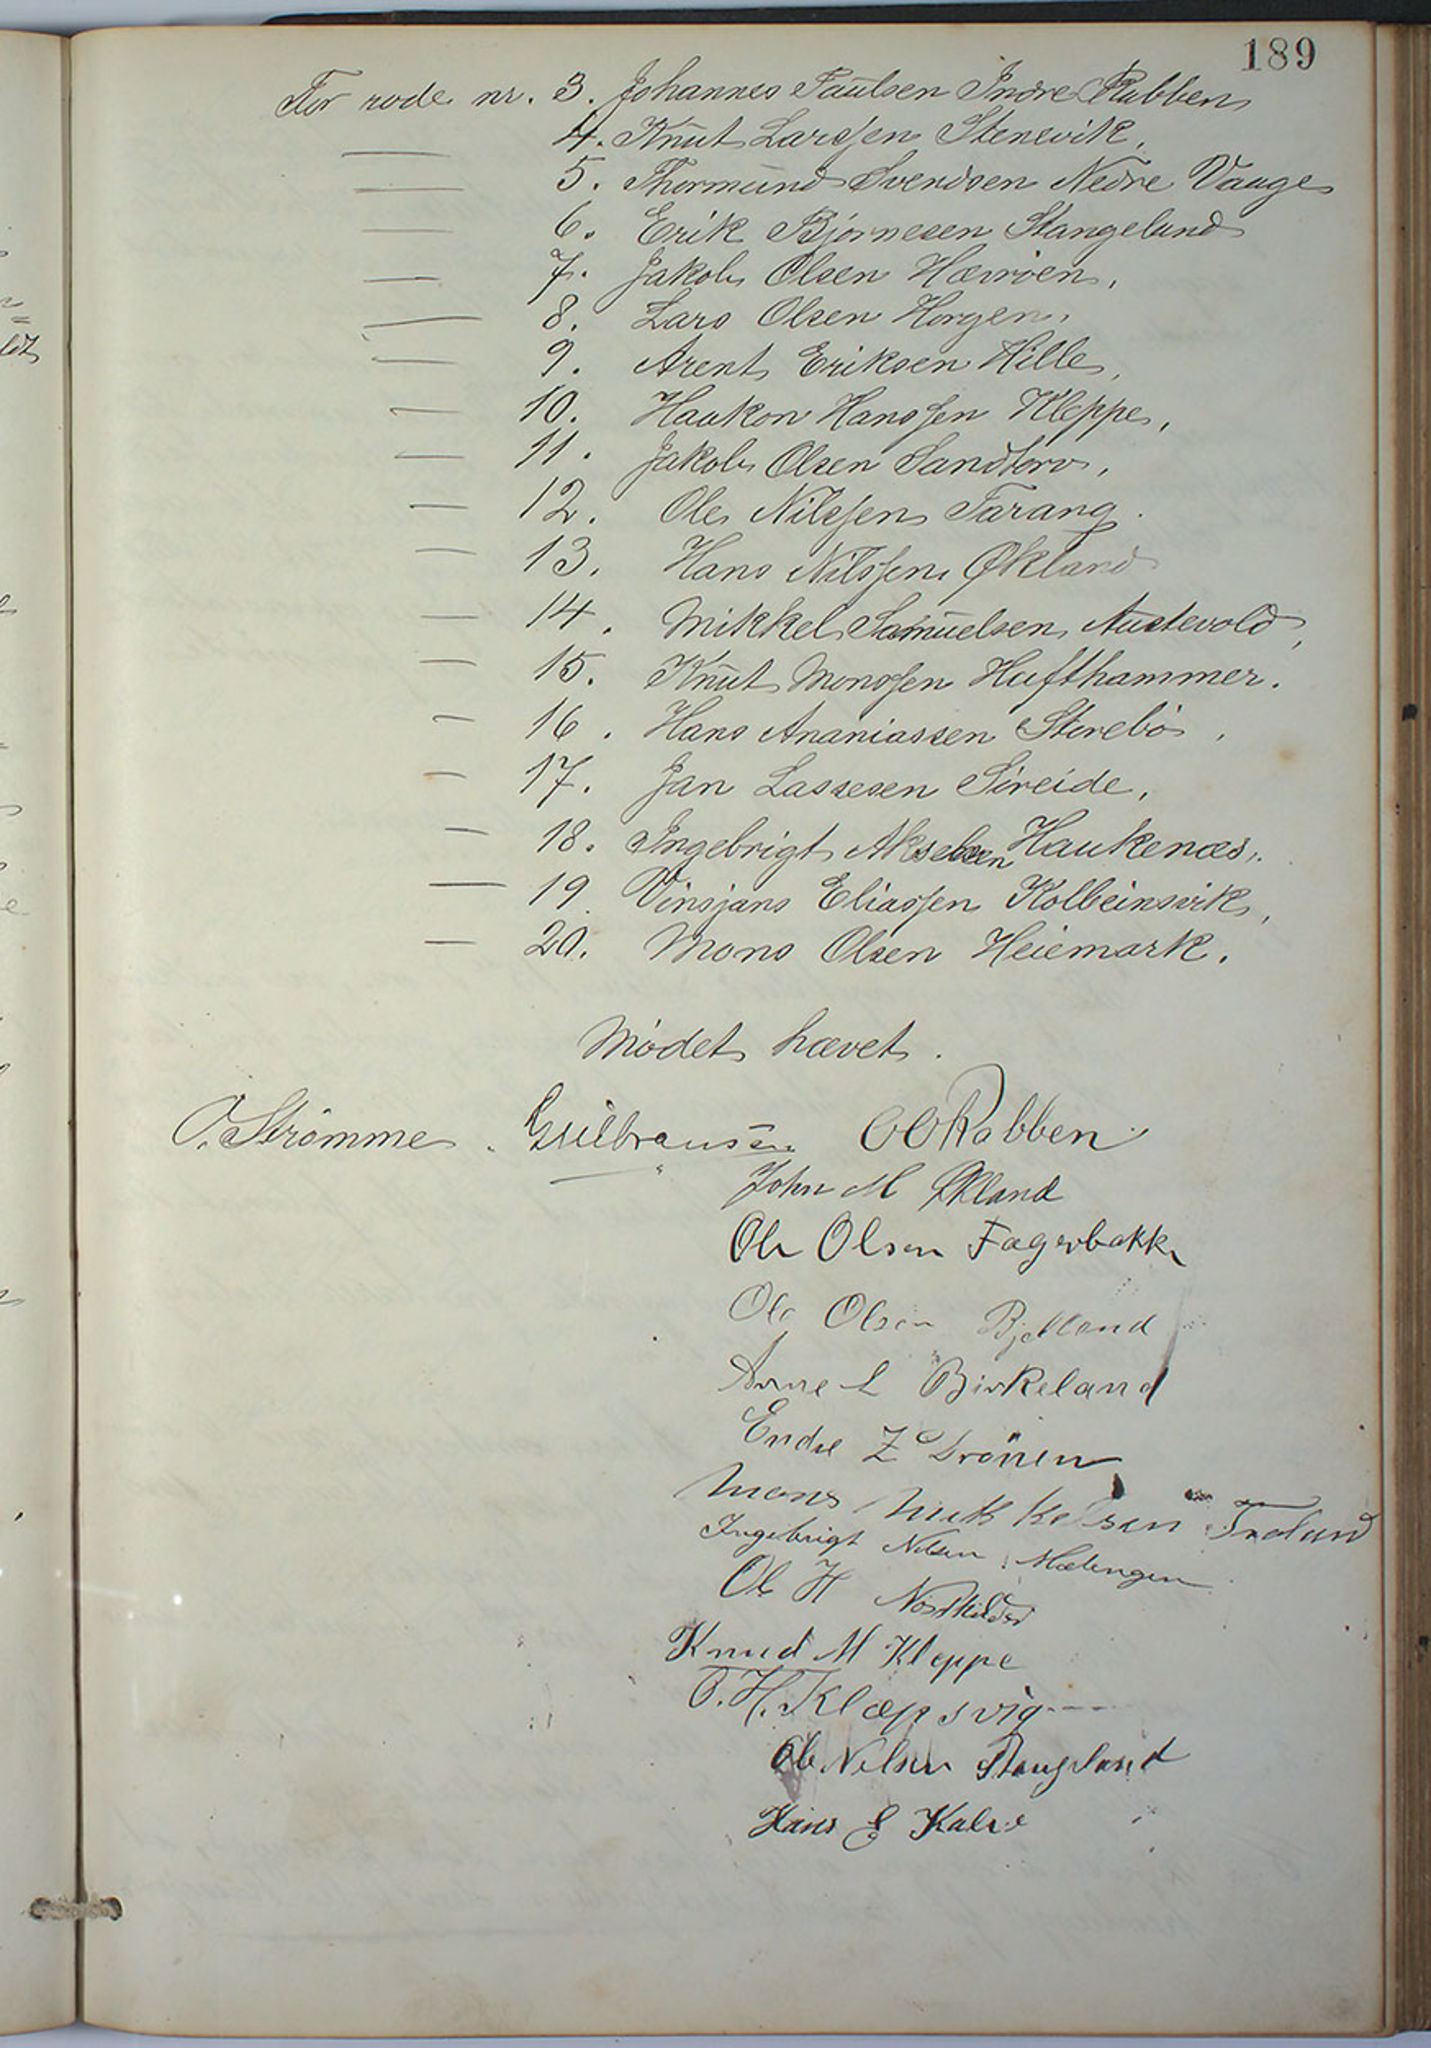 189
For rode nr. 3. Johannes Paulsen Indre Rabben
— 4. Knut Larssen Stenevik,
— 5. Thormund Svendsen Nedre Vaage
— 6. Erik Bjørnesen Stangeland
— 7. Jakob Olsen Hævrøen,
— 8. Lars Olsen Horgen,
— 9. Arent Eriksen Hille,
— 10. Haakon Hanssen Kleppe,
— 11. Jakob Olsen Sandtorv,
— 12. Ole Nilssen Tarang.
— 13. Hans Nilssen Økland
— 14. Mikkel Samuelsen Austevold,
— 15. Knut Monssen Hufthammer.
— 16. Hans Ananiassen Storebø,
— 17. Jan Lassesen Søreide,
— 18. Ingebrigt Akselsen Haukenæs,
— 19 Vinsjans Eliassen Kolbeinsvik,
— 20. Mons Olsen Heiemark.
Mødet hævet.
O. Strømme. Gulbransen O O Rabben
John M Økland
Ole Olsen Fagerbakke
Ole Olsen Bjelland
Arne L Birkeland
Endre Z Drønen
Mons Mikkelsen
Ingebrigt Nilsen Mælingen
Ole H
Knud M Kleppe
O. H. Klæpsvig
Ole Nilsen Stangeland
Hans E Kalve